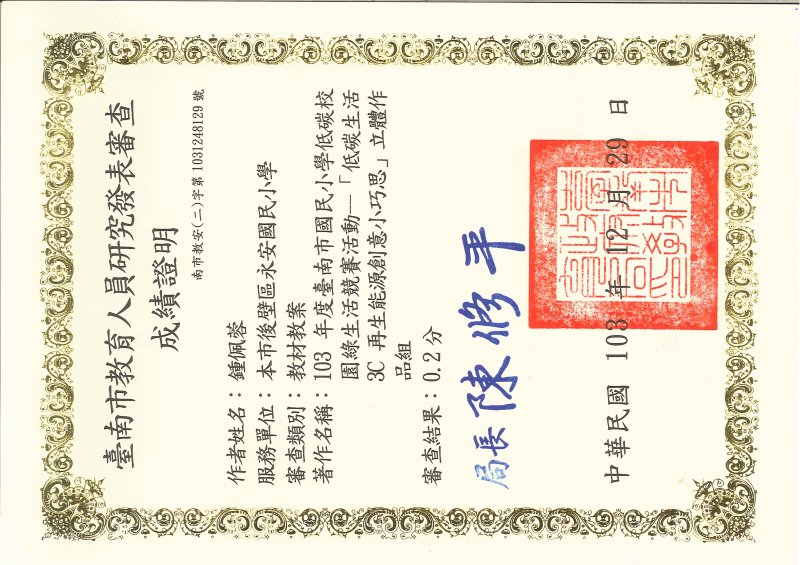 臺南市教育人員研究發表審查
成績證明
南市教安(二)字第1031248129號
作者姓名：鍾佩蓉
服務單位：本市後壁區永安國民小學
審查類別：教材教案
著作名稱：103 年度臺南市國民小學低碳校
園綠生活競賽活動—「低碳生活
3C 再生能源創意小巧思」立體作
品組
審查結果：0.2分
局長陳修平
中華民國 103 年 12 月 29 日